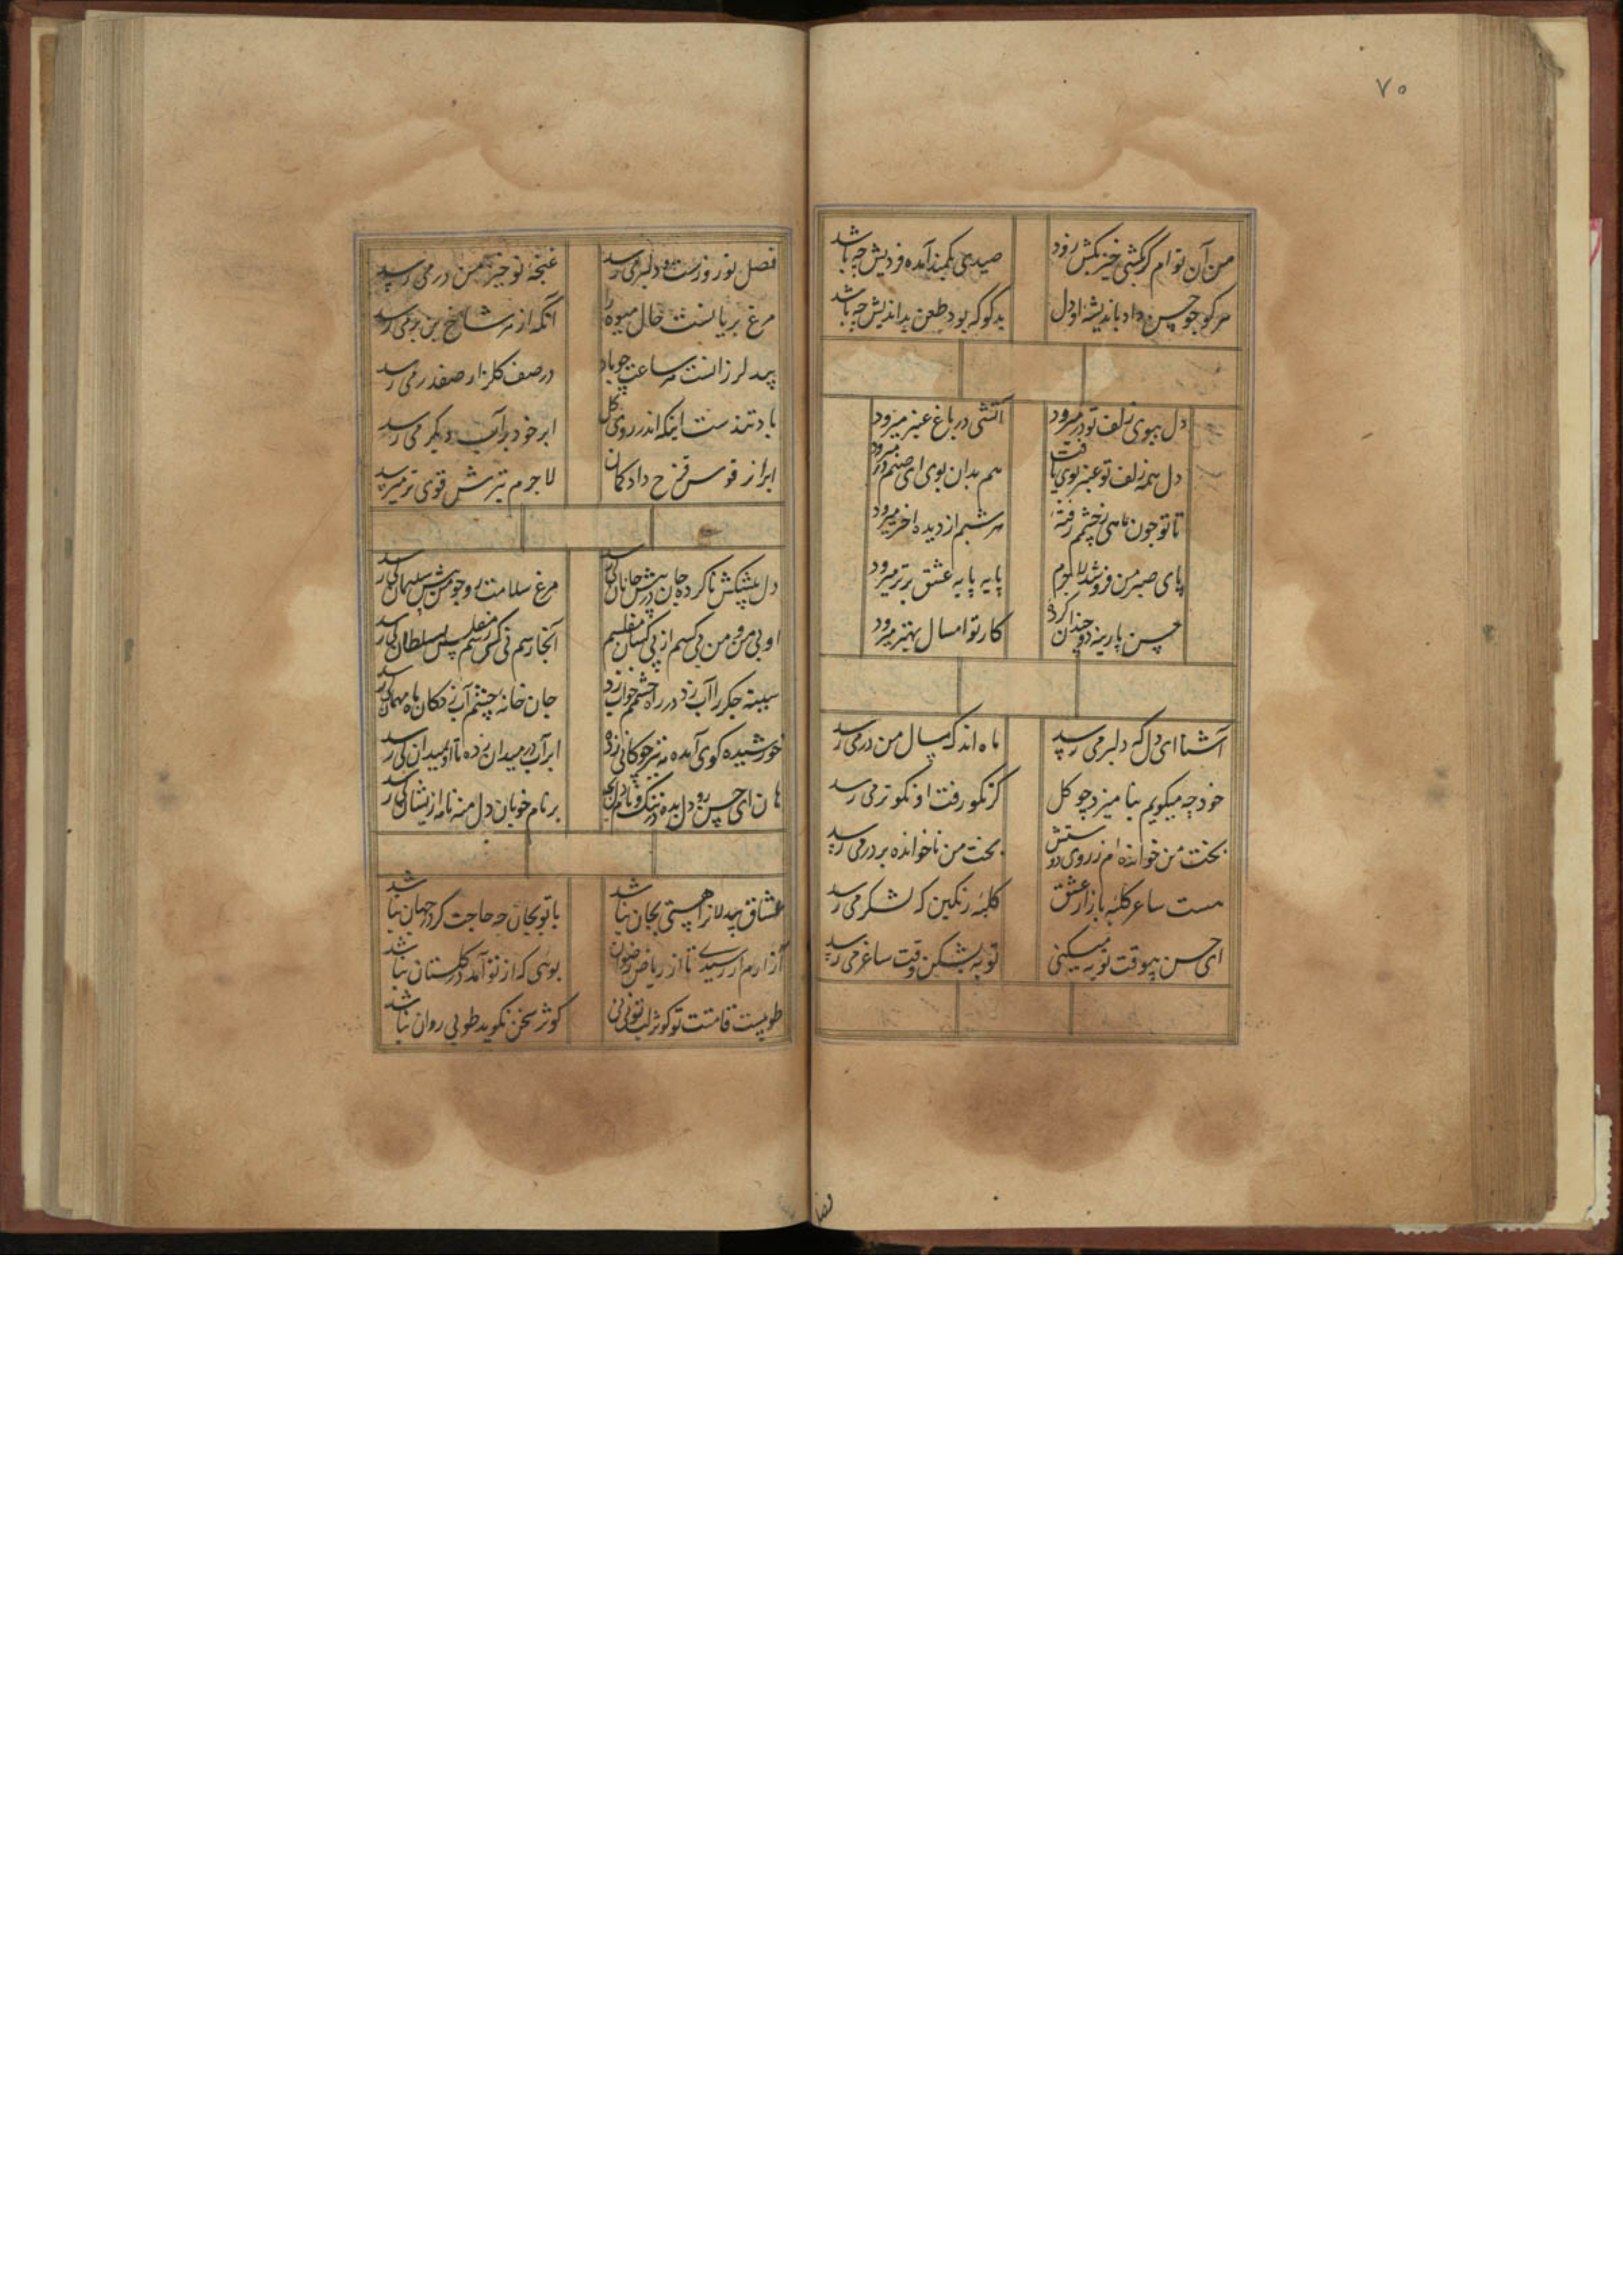 ۷۵
من آن توام گر بکشی خیز بکش زود
صیدی بکمند آمده فردیش چه باشد
هر کو چو حسن داد باندیشه او دل
بد گو که بود طعن بداندیش چه باشد
دل ببوی زلف تو در میرود
آتشی در باغ عنبر میرود
دل همه زلف تو عنبر بوی یافت
هم بدان بوی ای صنم در میرود
تا تو چون ماهی ز چشمم رفتهٔ
هر شبم از دیده اختر میرود
پای صبر من فرو شد لاجرم
پایه پایه عشق برتر میرود
حسن پارینه دو چندان کرد
کار تو امسال بهتر میرود
آشنا ای دل که دلبر می رسد
ماه اند که سال من در می رسد
خود چه میگویم بنا میزد چو کل
کز نکو رفت او نکوتر می رسد
بخت من خوانده ام ز روی دوستش
بخت من ناخوانده بر در می رسد
مست ساعر کلبه بازار عشق
کلبه رنکین که لشکر می رسد
ای حسن بیوقت توبه میکنی
توبه بشکن وقت ساغر می رسد
فصل
فصل نوروزست و دلبر می رسد
غنچهٔ نو خیز من در می رسد
مرغ بریانست حال میوه را
آنکه از هر شاخ بن بر می رسد
بید لرزانست هر ساعت چو باد
در صف کلزار صفدر می رسد
باد تندست اینکه اندر روی کل
ابر خود بر آب دیگر می رسد
ابر از قوس قزح دارد کمان
لاجرم تیرش قوی تر میرسد
دل پیشکش ناکرده جان در پیش جانان کی رسد
مرغ سلامت رو چو من پیش سلیمان کی رسد
او بی من و من بی کسم از بی کسان مفلسم
آنجا رسم نی کی رسم مفلس بسلطان کی رسد
سینه جکر را آب زد در راه چشمم خواب زد
جان خانه چشم آب زد کان ماه مهمان کی رسد
خورشید کوی آمده مه نیز چوکانی زده
ابر آب در میدان زده تا او بمیدان کی رسد
هان ای حسن رو دل بده در ننک و نام دل مجه
بر نام خوبان دل منه نامه از یشان کی رسد
عشاق بیدلانرا هستی بجان نباشد
با تو بجان چه حاجت کرد جهان نباشد
آزارم ار رسیدی تا از ریاض رضوان
بویی که از تو آمد در کلستان نباشد
طوبیست قامتت تو کوثر لب تو نی نی
کوثر سخن نکوید طوبی روان نباشد